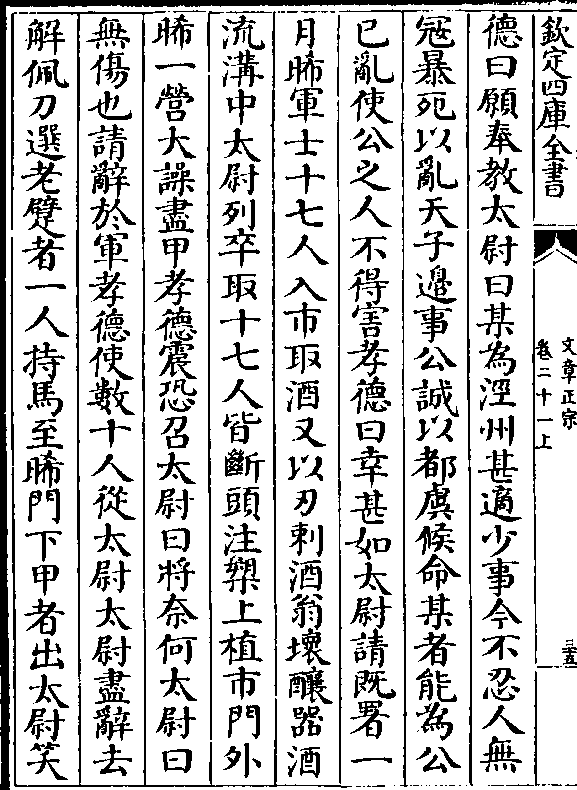 欽定四庫全書
文章正宗
卷二十一上
三五
德曰願奉教太尉曰某為涇州甚適少事今不忍人無
冦暴死以亂天子邉事公誠以都虞候命某者能為公
已亂使公之人不得害孝德曰幸甚如太尉請既署一
月晞軍士十七人入市取酒又以刃刺酒翁壊釀器酒
流溝中太尉列卒取十七人皆斷頭注槊上植市門外
晞一營大譟盡甲孝德震恐召太尉曰將奈何太尉曰
無傷也請辭於軍孝德使數十人從太尉太尉盡辭去
解佩刀選老躄者一人持馬至晞門下甲者出太尉笑